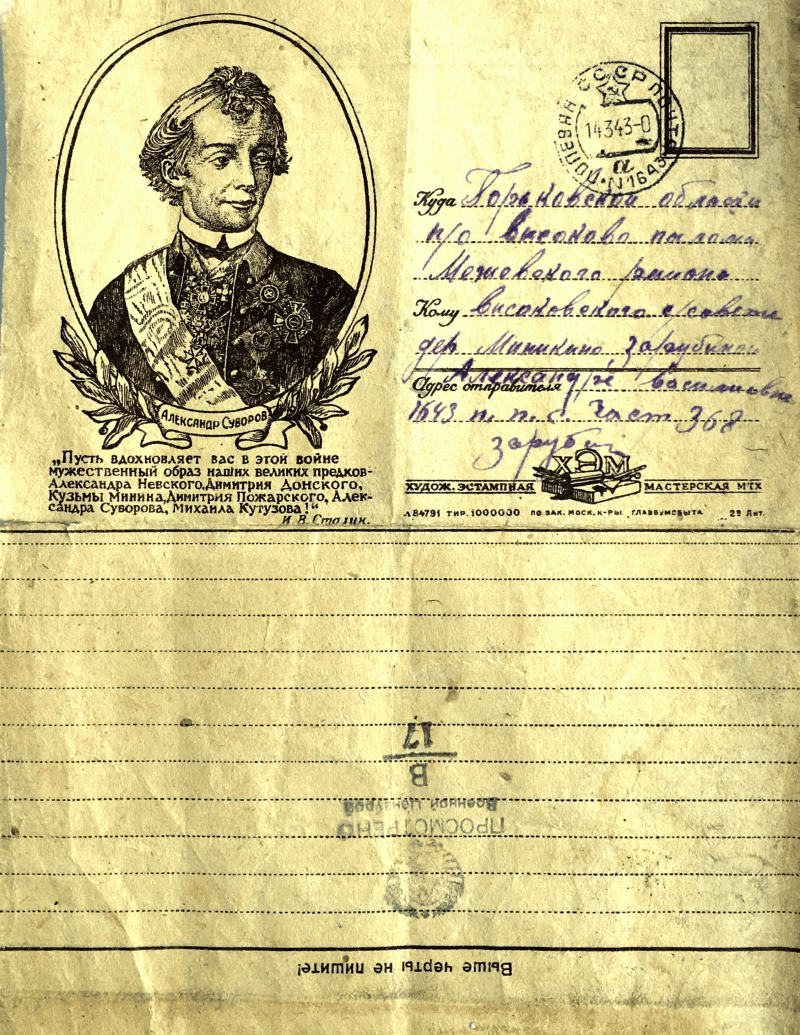 АЛЕКСАНДР СУВОРОВ
„Пусть вдохновляет вас в этой войне
мужественный образ наших великих предков-
Александра Невского, Димитрия Донского,
Кузьмы Минина, Димитрия Пожарского, Алек-
сандра Суворова, Михаила Кутузова!“
И. В. Сталин.
СССР ПОЧТА
14343-0
а
ПОЛЕВАЯ N1643
Куда Горьковской области
п/о Високово
Можевского района
Кому Високовского с/совета
дер Миникино Зарубиной
Адрес отправителя
Александре Васильевне
1643 п. п. с. Част 368
Зарубин
ХЭМ
ХУДОЖ. ЭСТАМПНАЯ МАСТЕРСКАЯ МТХ
Л84791 ТИР. 1000000 ПО ЗАК. МОСК. К-РЫ „ГЛАВБУМСБЫТА“ 28 Лит.
17
В
Военной Цензурой
ПРОСМОТРЕНО
Выше черты не пишите!